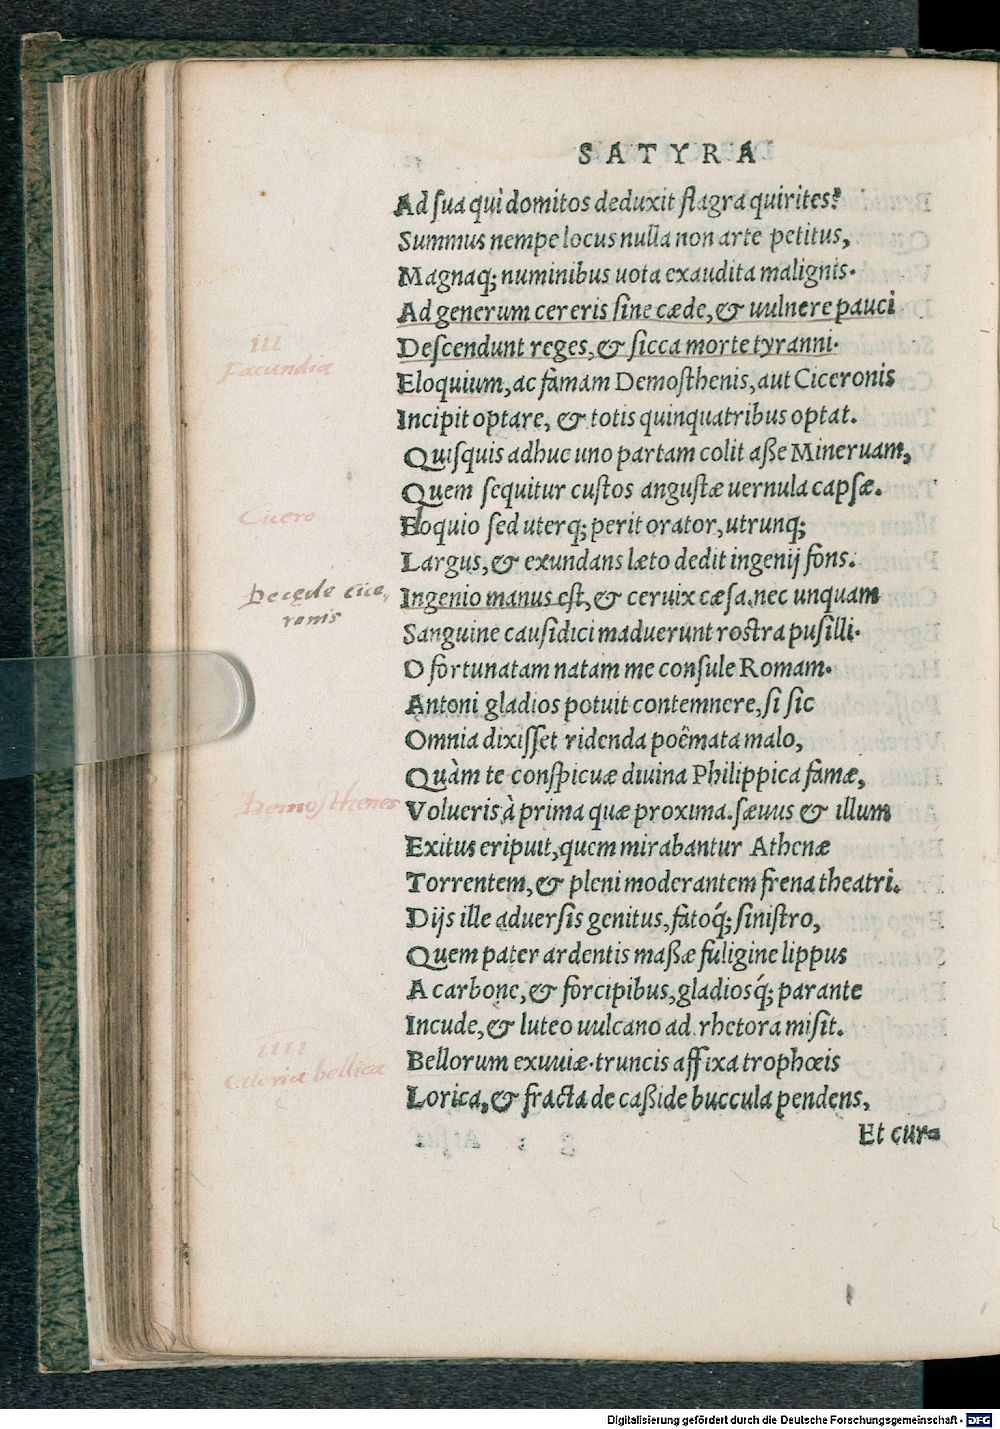 SATYRA
Ad sua qui domitos deduxit flagra quirites?
Summus nempe locus nulla non arte petitus,
Magnaq; numinibus uota exaudita malignis.
Ad generum cereris sine cæde, & uulnere pauci
III
Descendunt reges, & sicca morte tyranni.
Facundia
Eloquium, ac famam Demosthenis, aut Ciceronis
Incipit optare, & totis quinquatribus optat.
Quisquis adhuc uno partam colit asse Mineruam,
Quem sequitur custos angustæ uernula capsæ.
Cicero
Eloquio sed uterq; perit orator, utrunq;
Largus, & exundans læto dedit ingenij fons.
De cęde cice,
Ingenio manus est, & ceruix cæsa. nec unquam
ronis
Sanguine causidici maduerunt rostra pusilli.
O fortunatam natam me consule Romam.
Antoni gladios potuit contemnere, si sic
Omnia dixisset ridenda poêmata malo,
Quàm te conspicuæ diuina Philippica famæ,
Demosthenes
Volueris à prima quæ proxima. sæuus & illum
Exitus eripuit, quem mirabantur Athenæ
Torrentem, & pleni moderantem frena theatri.
Dijs ille aduersis genitus, fatoq́; sinistro,
Quem pater ardentis massæ fuligine lippus
A carbone, & forcipibus, gladiosq́; parante
Incude, & luteo uulcano ad rhetora misit.
IIII
Bellorum exuuiæ. truncis affixa trophœis
Gloria bellica
Lorica, & fracta de casside buccula pendens,
Et cur=
Digitalisierung gefördert durch die Deutsche Forschungsgemeinschaft - DFG